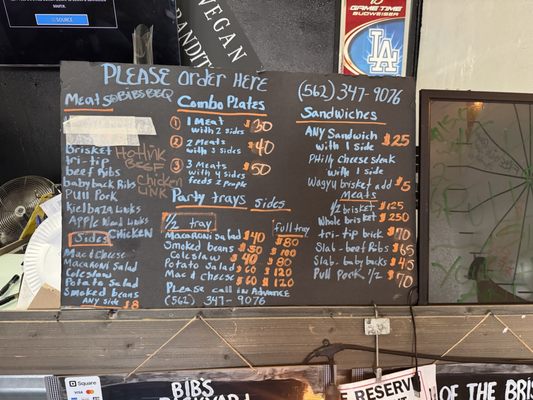 SOURCE
VEGAN
BANDIT
GAME TIME
BUDWEISER
LA
PLEASE Order Here
Meats @Bibs BBQ
Brisket
tri-tip
beef Ribs
baby back Ribs
Pull Pork
Kielbaza Links
Apple Wood Links
Hotlink
BEEF
Chicken
LINK
CHICKEN
Sides
Mac & Cheese
Macaroni Salad
Coleslaw
Potato Salad
Smoked Beans
Any Side $8
Combo Plates
1 1 Meat with 2 sides $30
2 2 Meats with 3 sides $40
3 3 Meats with 4 sides $50
feeds 2 people
Party trays Sides
1/2 tray full tray
Macaroni Salad $40 $80
Smoked beans $50 $100
Coleslaw $40 $80
Potato Salad $60 $120
Mac & Cheese $60 $120
Please call in Advance
(562) 347-9076
(562) 347-9076
Sandwiches
ANY Sandwich with 1 side $25
Philly Cheese steak with 1 side
Wagyu brisket add $5
Meats
1/2 brisket $125
Whole brisket $250
tri-tip brick $70
Slab-beef Ribs $65
Slab. baby backs $45
Pull Pork 1/2 $70
Square
VISA
BIBS
E RESERV
OF THE BRIS